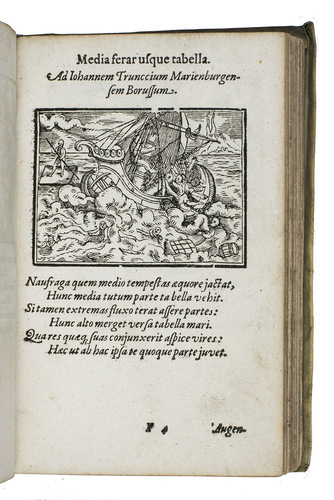 Media ferar usque tabella.
Ad Iohannem Trunccium Marienburgen-
sem Borussum.
Naufraga quem medio tempestas æquore jactat,
Hunc media tutum parte ta bella vehit.
Si tamen extremas fluxo terat assere partes:
Hunc alto merget versa tabella mari.
Qua res quæq, suas conjunxerit aspice vires:
Hæc ut ab hac ipsa te quoque parte juvet.
F 4 Augen-